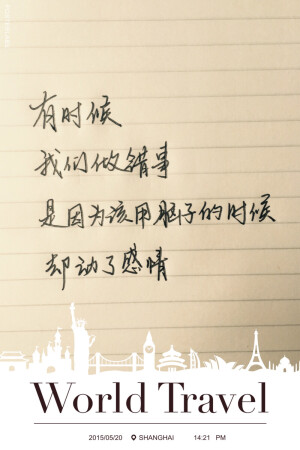 有时候
我们做错事
是因为该用脑子的时候
却动了感情
World Travel
2015/05/20 SHANGHAI 14:21 PM